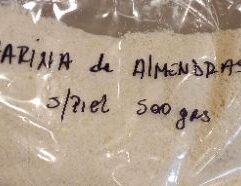 ARINA de ALMENDRAS
S/PIEL 500 grs